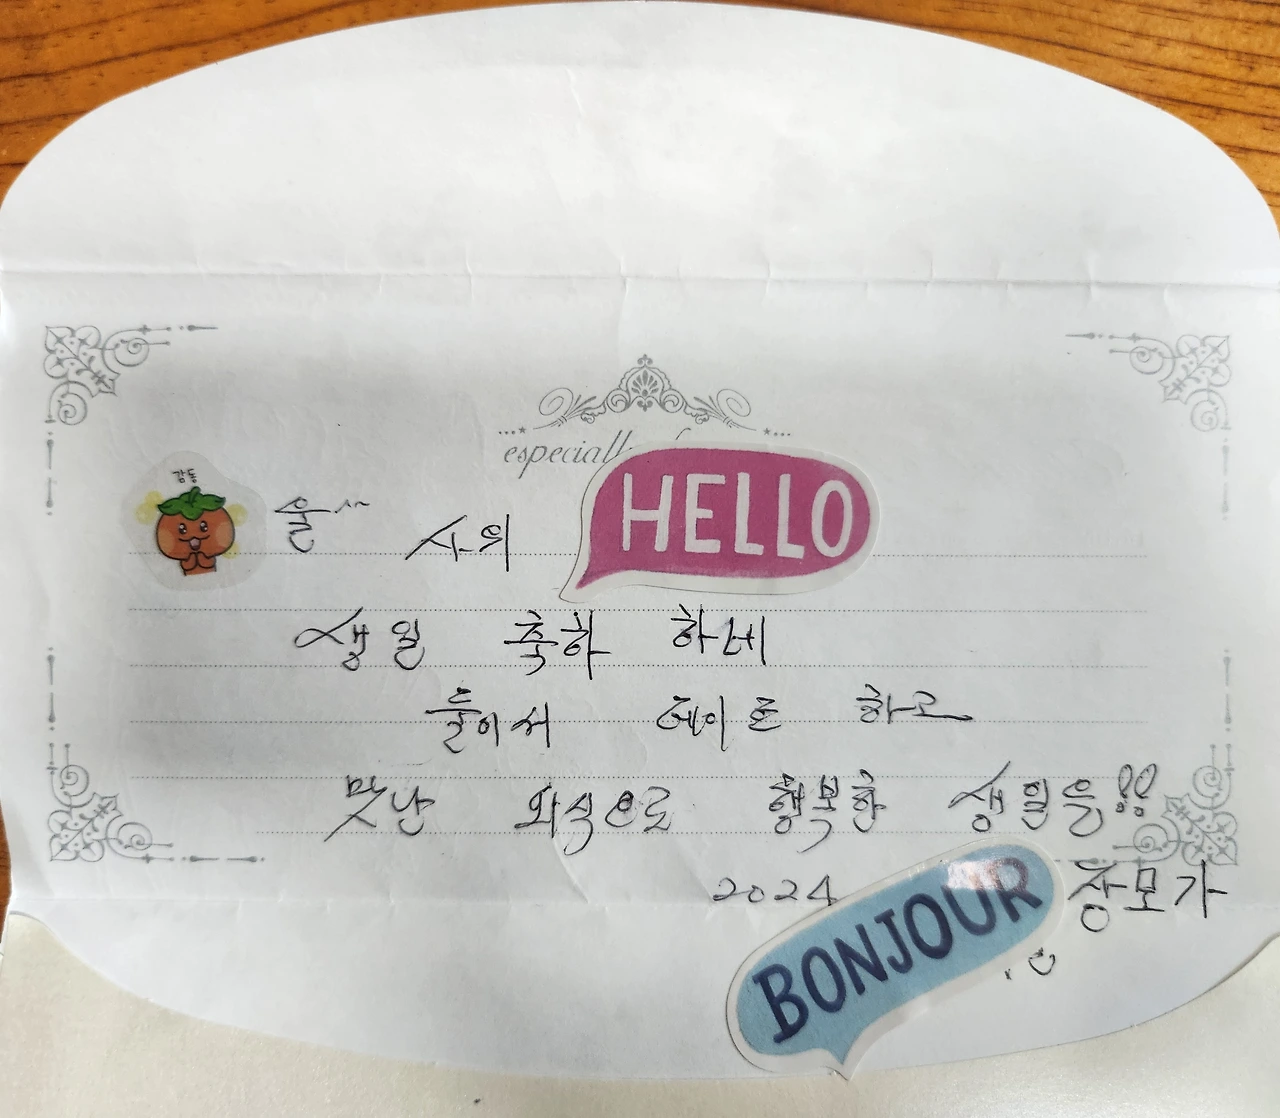 especiall
HELLO
감동
울~~ 사위
생일 축하 하네
둘이서 데이트 하고
맛난 외식으로 행복한 생일을!!
2024 장모가
BONJOUR